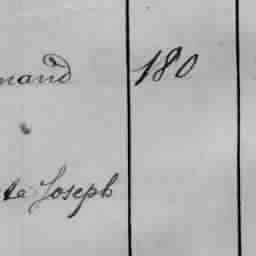 mand 180
te Joseph